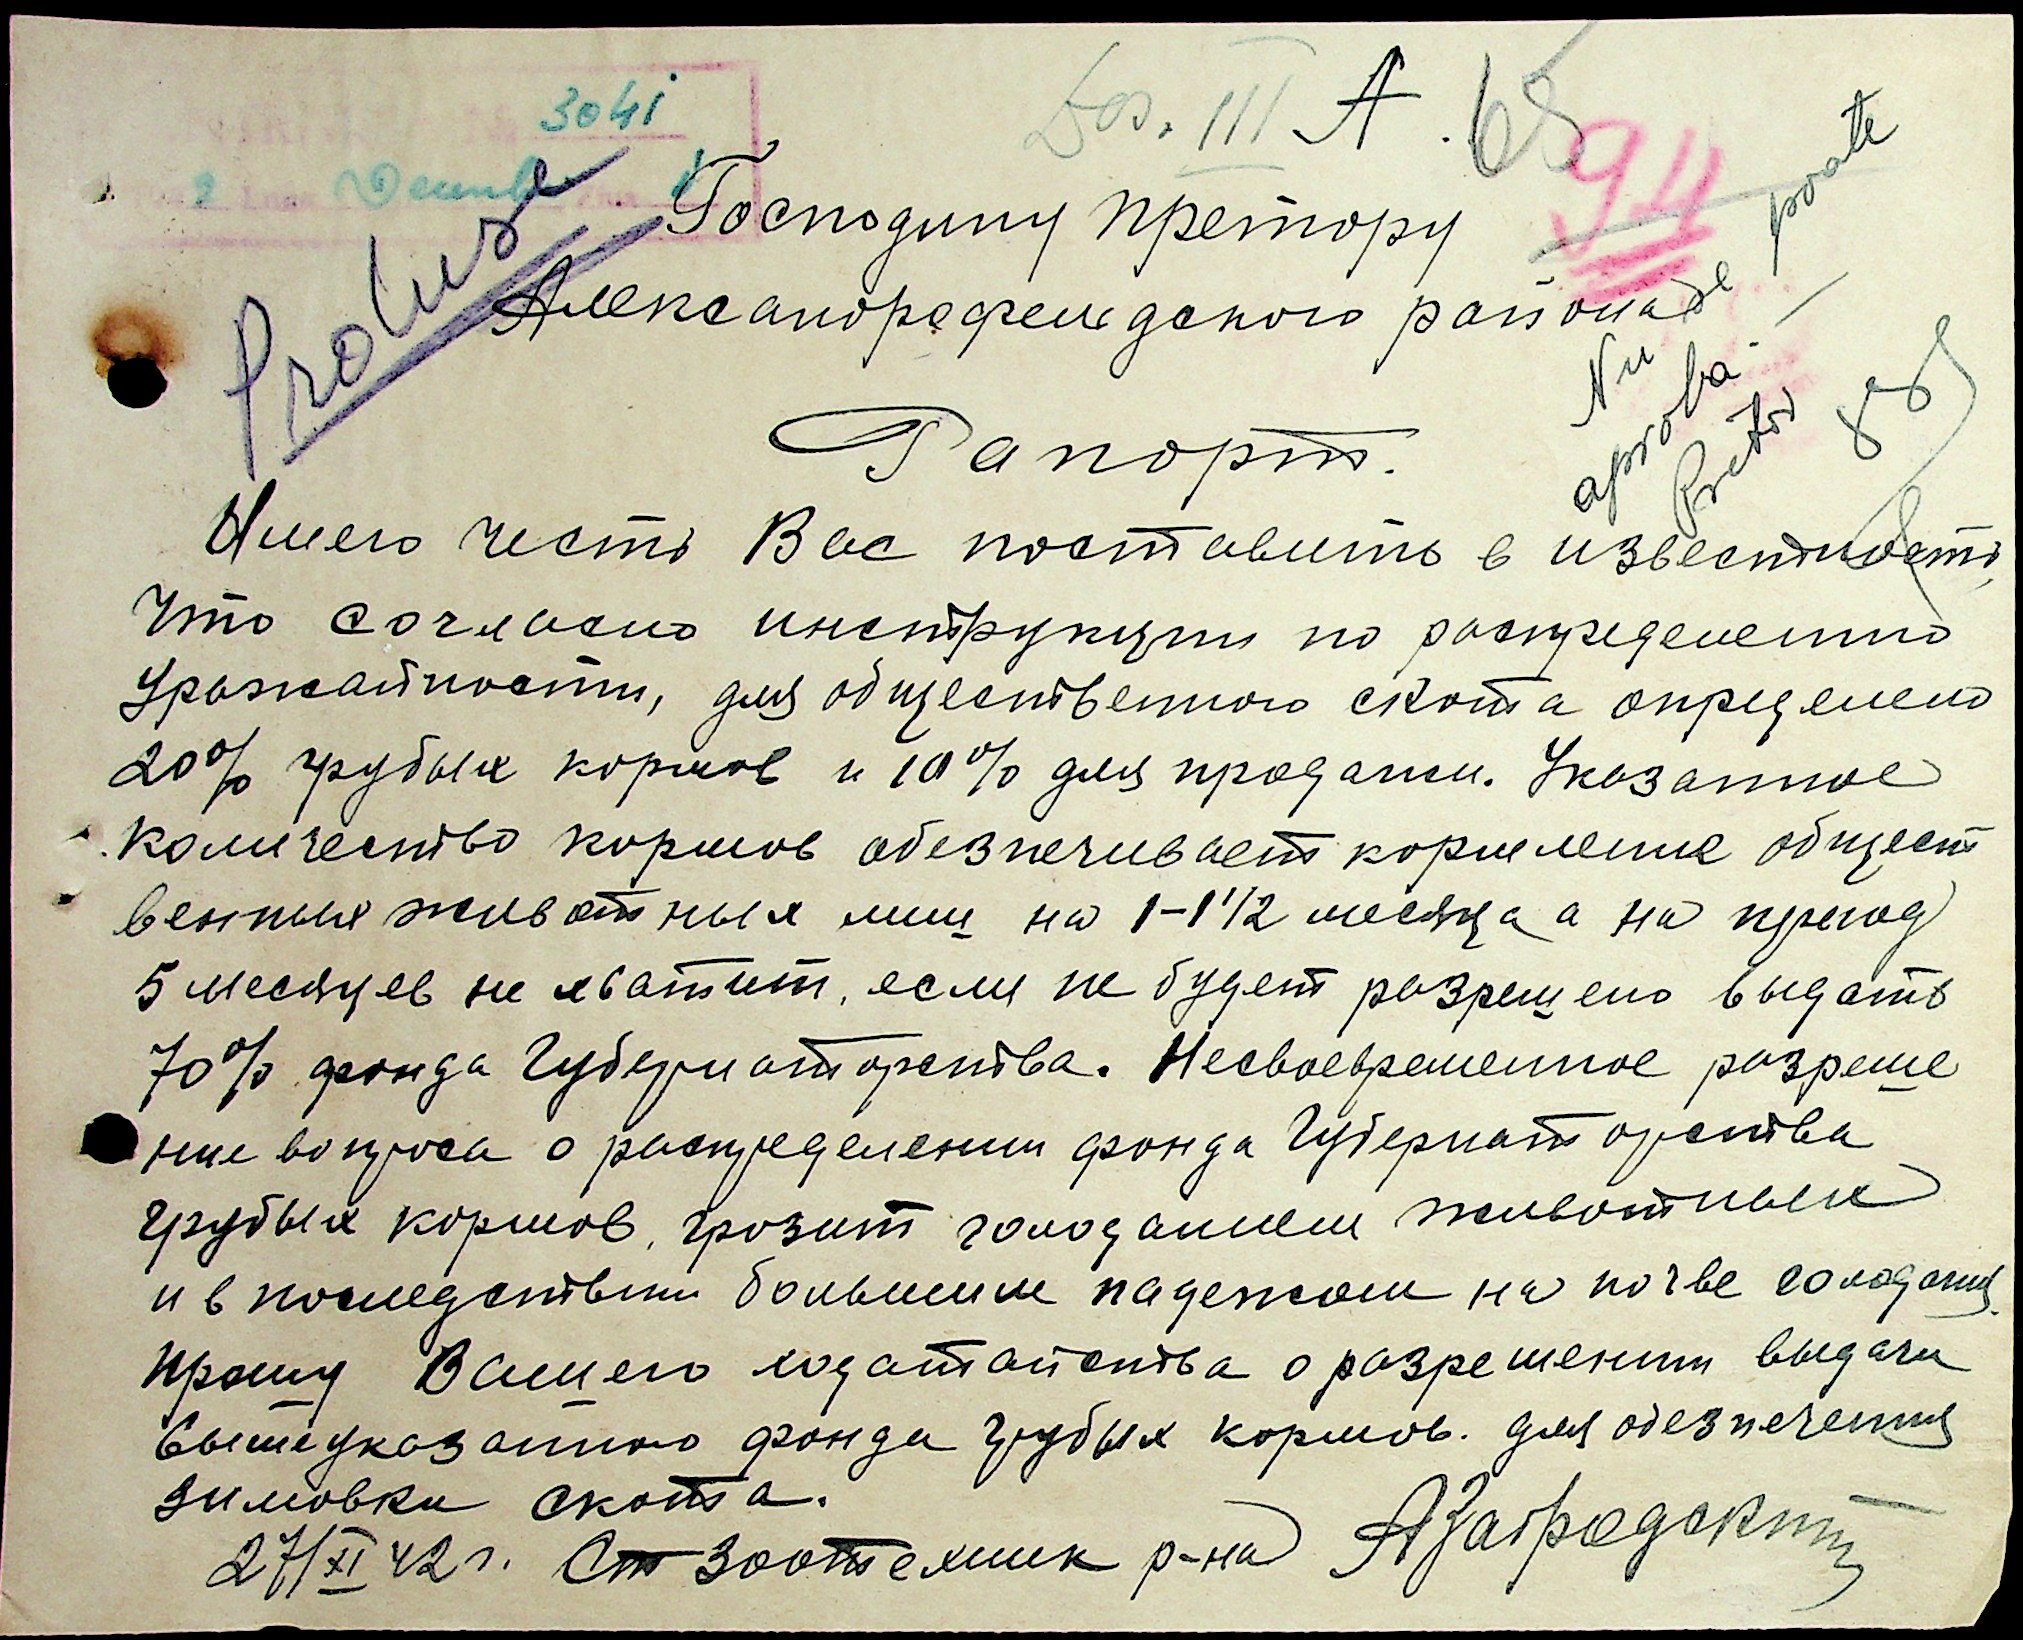 3041
Dos. III A. 68
2 Decembrie
94
Господину Претору
Александрфельдского района
Nu se poate
aproba.
Pretor
Рапорт.
Имею честь Вас поставить в известность,
что согласно инструкции по распределению
урожайности, для общественного скота определено
20% грубых кормов и 10% для продажи. Указанное
количество кормов обезпечивает кормление общест
венных животных лиш на 1-1 1/2 месяца а на период
5 месяцев не хватит, если не будет разрешено выдать
70% фонда Губернаторства. Несвоевременное разреше
ние вопроса о распределении фонда Губернаторства
грубых кормов, грозит голоданием животных
и в последствии большим падежом на почве голодания.
Прошу Вашего ходатайства о разрешении выдачи
вышеуказанного фонда грубых кормов. для обезпечения
зимовки скота.
27/XI 42 г. Ст зоотехник р-на АЗагродский